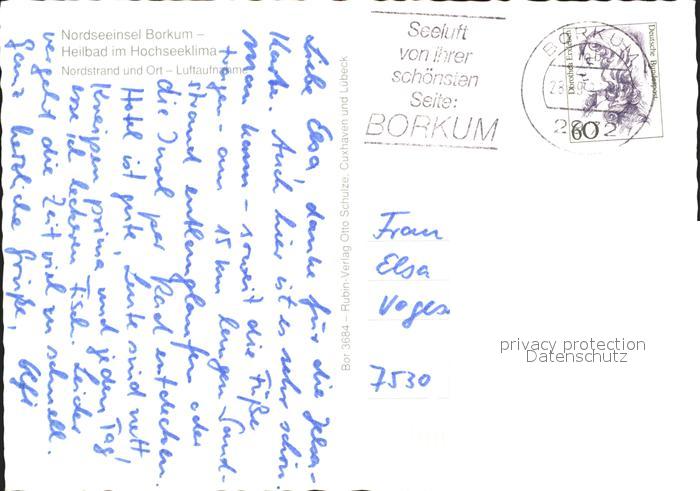 Nordseeinsel Borkum –
Heilbad im Hochseeklima
Nordstrand und Ort – Luftaufnahme
Liebe Elsa danke für die
Karte. Auch hier ist es sehr schön.
Man kann – soweit die Füße
tragen – am 15 km langen Sand-
strand entlanglaufen oder
die Insel per Rad entdecken.
Hotel ist gut, Leute sind nett,
Kneipen prima und jeden Tag
esse ich leckeren Fisch. Leider
vergeht die Zeit viel zu schnell.
Ganz herzliche Grüße,
Bor 3684 – Rubin-Verlag Otto Schulze, Cuxhaven und Lübeck
Seeluft
von Ihrer
schönsten
Seite:
BORKUM
BORKUM
2972
Deutsche Bundespost
Dorothea Erxleben
60
Frau
Elsa
Voges
7530
privacy protection
Datenschutz